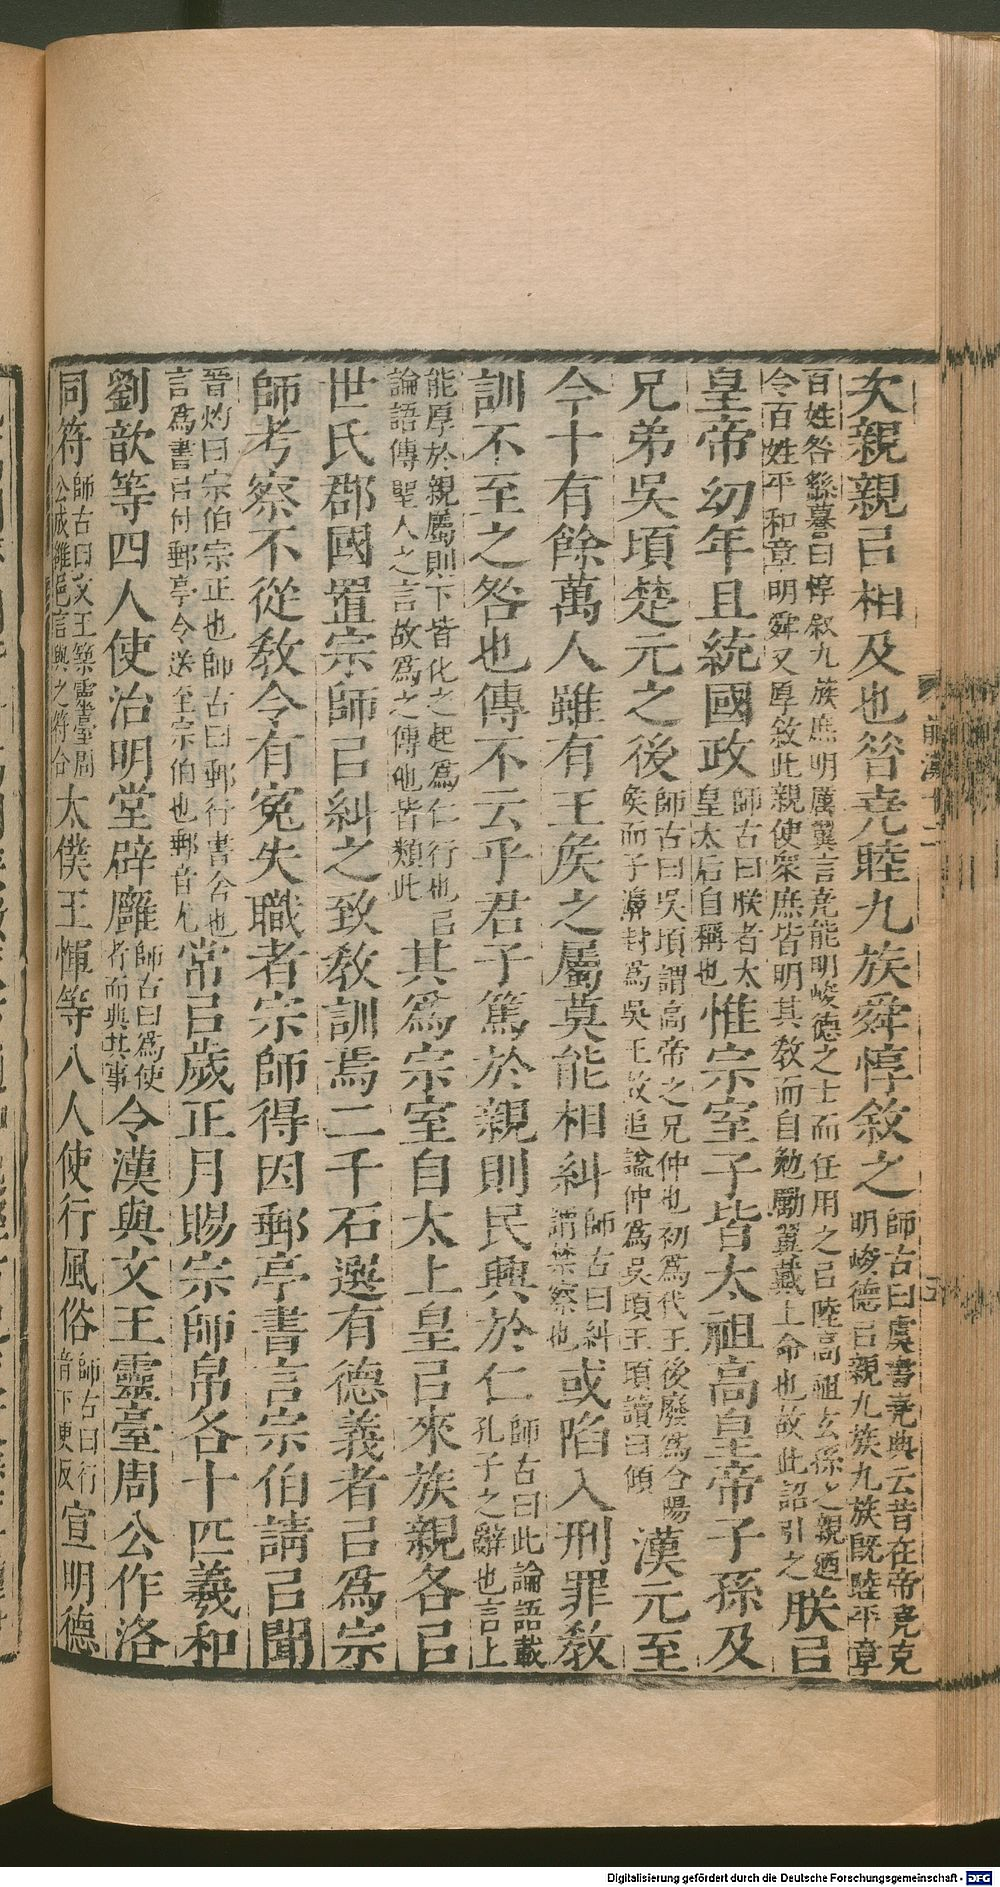 次親親㠯相及也昝堯睦九族舜惇敘之師古曰虞書堯典云昔在帝堯克明峻德㠯親九族九族旣睦平章
百姓咎繇謩曰惇叙九族庶明厲翼言堯能明峻德之士而任用之㠯睦高祖玄孫之親遒令百姓平和章明舜又厚敘此親使衆庶皆明其敎而自勉勵翼戴上命也故此詔引之朕㠯
皇帝幼年且統國政師古曰朕者太皇太后自稱也惟宗室子皆太祖高皇帝子孫及
兄弟吳頃楚元之後師古曰吳頃謂高帝之兄仲也初爲代王後廢爲合陽矦而子濞封爲吳王故追謚仲爲吳頃王頃讀曰傾漢元至
今十有餘萬人雖有王矦之屬莫能相糾師古曰糾謂禁察也或陷入刑罪敎
訓不至之咎也傳不云乎君子篤於親則民興於仁師古曰此論語載孔子之辭也言上
能厚於親屬則下皆化之起爲仁行也㠯論語傳聖人之言故爲之傳他皆類此其爲宗室自太上皇㠯來族親各㠯
世氏郡國置宗師㠯糾之致敎訓焉二千石選有德義者㠯爲宗
師考察不從敎令有寃失職者宗師得因郵亭書言宗伯請㠯聞
晉灼曰宗伯宗正也師古曰郵行書舍也言爲書㠯付郵亭令送至宗伯也郵音尤常㠯歲正月賜宗師帛各十匹羲和
劉歆等四人使治明堂辟廱師古曰爲使者而典其事令漢與文王靈臺周公作洛
同符師古曰文王築靈臺周公成雒邑言與之符合太僕王惲等八人使行風俗師古曰行音下更反宣明德
前漢十二
Digitalisierung gefördert durch die Deutsche Forschungsgemeinschaft - DFG